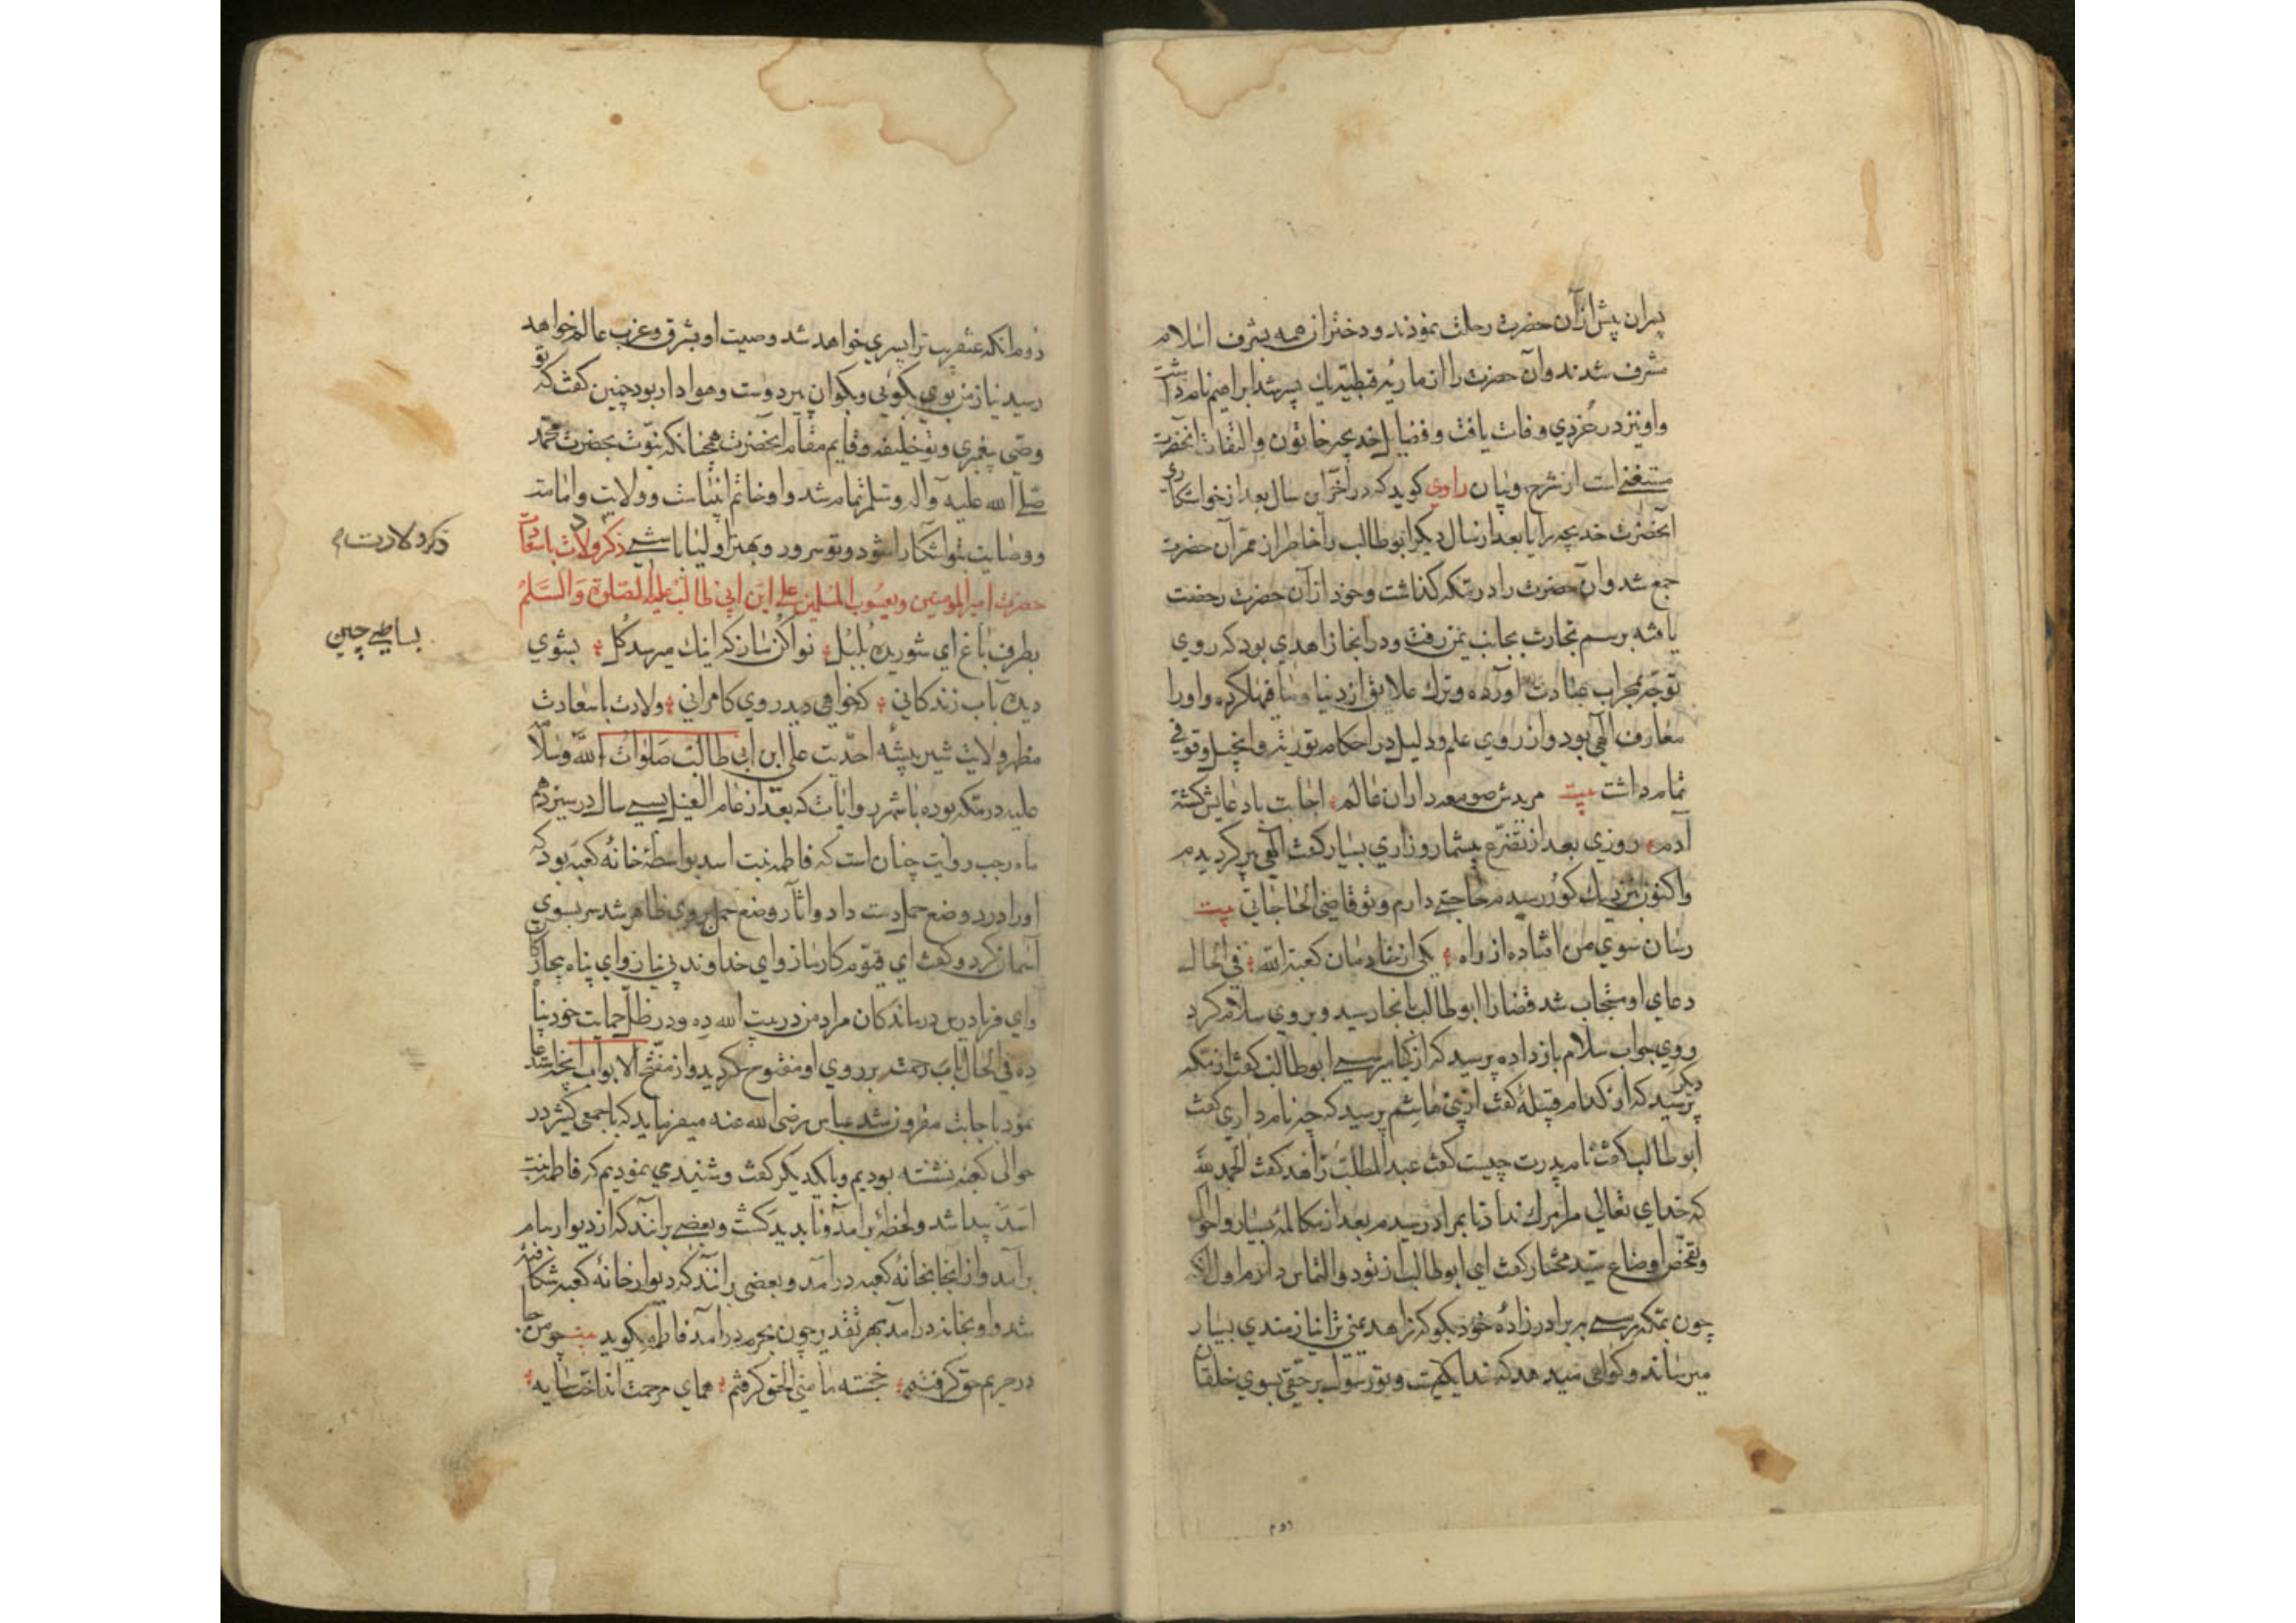 پسران پیش از آن حضرت رحلت نمودند و دختران همه بشرف اسلام
مشرف شدند و آن حضرت را از ماریه قبطیه یک پسر شد ابراهیم نام داشت
و او نیز در خردی وفات یافت و فضایل خدیجه خاتون و التفات آنحضرت
مستغنی است از شرح و بیان راوی کوید که در آخر این سال بعد از خواستکاری
آنحضرت خدیجه را یا بعد از سال دیکر ابو طالب را خاطر از ممر آن حضرت
جمع شد و آن حضرت را در مکه کذاشت و خود از آن حضرت رخصت
یافته برسم تجارت بجانب یمن رفت و در انجا زاهدی بود که روی
توجه بمحراب عبادت آورده و ترک علایق از دنیا و مافیها کرده و او را
معارف الهی بود و از روی علم و دلیل در احکام توریة و انجیل وقوفی
تمام داشت بیت مریدش صومعه داران عالم اجابت با دعایش کشته
آدم روزی بعد از تضرع بیشمار و زاری بسیار کفت الهی پیر کردیدم
و اکنون نزدیک کور رسیدم حاجتی دارم و تو قاضی الحاجاتی بیت
رسان سوی من افتاده از راه یکی از خادمان کعبة الله فی الحال
دعای او مستجاب شد قضا را ابو طالب بانجا رسید و بروی سلام کرد
و وی جواب سلام باز داده پرسید که از کجا میرسی ابو طالب کفت از مکه
دیکر پرسید که از کدام قبیلهٔ کفت از بنی هاشم پرسید که چه نام داری کفت
ابو طالب کفت نام پدرت چیست کفت عبد المطلب زاهد کفت الحمد لله
که خدای تعالی مرا مرک نداد تا بمراد رسیدم بعد از مکالمهٔ بسیار و احوال
و تفحص اوضاع سید مختار کفت ای ابو طالب از تو دو التماس دارم اول آنکه
چون بمکه برسی به برادرزادهٔ خود بکو که زاهد یمنی ترا نیازمندی بسیار
میرساند و کواهی میدهد که خدا یکیست و تو رسول بر حقی بسوی خلقان
دوم
دوم آنکه عنقریب ترا پسری خواهد شد و صیت او بشرق و غرب عالم خواهد
رسید نیاز من بوی بکویی و بکو آن پیر دوست و هوادار بود چنین کفت که تو
وصی پیغمبری و تو خلیفه و قایم مقام آنحضرت همچنانکه نبوت بحضرت محمد
صلی الله علیه و آله و سلم تمام شد و او خاتم انبیاست و ولایت و امامت
و وصایت بتو آشکارا شود و تو سرور و بهتر اولیا باشی ذکر ولادت باسعادت
حضرت امیر المؤمنین و یعسوب المسلمین علی ابن ابی طالب علیه الصلوة والسلم
بطرف باغ ای شوریده بلبل نوا کن ساز که اینک میرسد کل بشوی
دیده بآب زندکانی که خواهی دید روی کامرانی ولادت باسعادت
مظهر ولایت شیر بیشه احدیت علی ابن ابی طالب صلوات الله و سلامه
علیه در مکه بوده باشهر روایات که بعد از عام الفیل بسی سال در سیزدهم
ماه رجب روایت چنان است که فاطمه بنت اسد بواسطهٔ خانهٔ کعبه بود که
او را درد وضع حمل دست داد و آثار وضع حمل بروی ظاهر شد سر بسوی
آسمان کرد و کفت ای قیوم کارساز و ای خداوند بی نیاز و ای پناه بیچارکان
و ای فریادرس درماندکان مراد من در بیت الله ده و در ظل حمایت خود پناه
ده فی الحال باب رحمت بر روی او مفتوح کردید و از مفتح الابواب آنچه استدعا
نمود باجابت مقرون شد عباس رضی الله عنه میفرماید که با جمعی کثیر در
حوالی کعبه نشسته بودیم و با یکدیکر کفت و شنید می نمودیم که فاطمه بنت
اسد پیدا شد و لحظهٔ برآمد و ناپدید کشت و بعضی برآنند که از دیوار ببام
برآمد و از انجا بخانهٔ کعبه درآمد و بعضی برآنند که دیوار خانهٔ کعبه شکافته
شد و او بخانه درآمد بهر تقدیر چون بحرم درآمد فاطمه کوید بیت چو من جا
در حریم حق کرفتم خجسته مأمنی الحق کرفتم همای مرحمت انداخت سایه
ذکر ولادت م